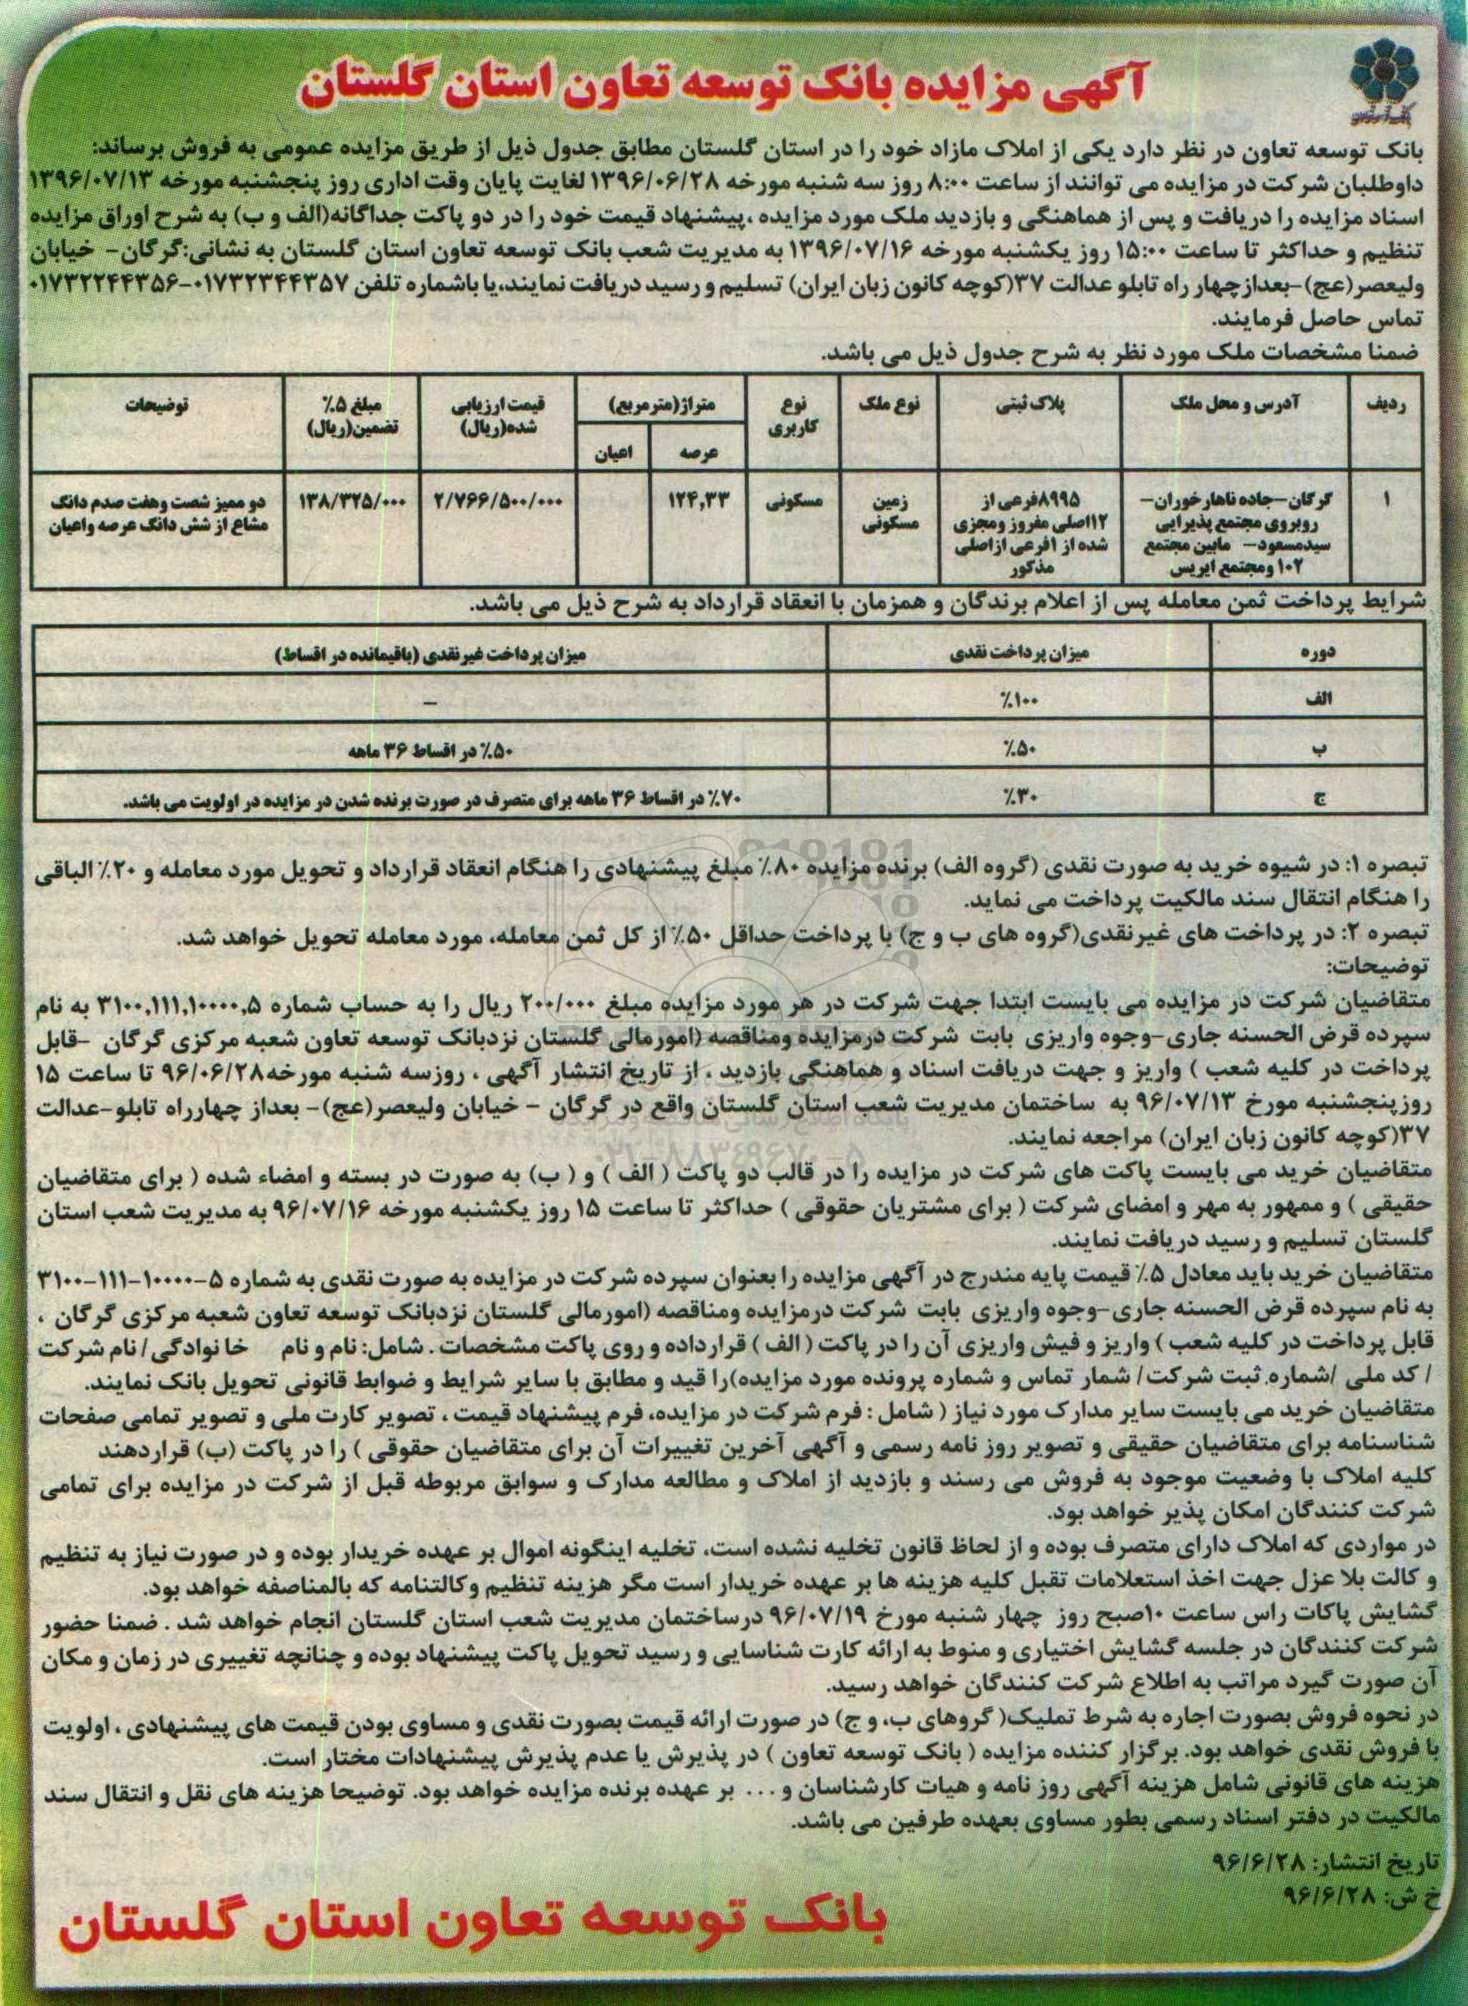 آگهی مزایده بانک توسعه تعاون استان گلستان
بانک توسعه تعاون در نظر دارد یکی از املاک مازاد خود را در استان گلستان مطابق جدول ذیل از طریق مزایده عمومی به فروش برساند:
داوطلبان شرکت در مزایده می توانند از ساعت ۸:۰۰ روز سه شنبه مورخه ۱۳۹۶/۰۶/۲۸ لغایت پایان وقت اداری روز پنجشنبه مورخه ۱۳۹۶/۰۷/۱۳
اسناد مزایده را دریافت و پس از هماهنگی و بازدید ملک مورد مزایده ،پیشنهاد قیمت خود را در دو پاکت جداگانه(الف و ب) به شرح اوراق مزایده
تنظیم و حداکثر تا ساعت ۱۵:۰۰ روز یکشنبه مورخه ۱۳۹۶/۰۷/۱۶ به مدیریت شعب بانک توسعه تعاون استان گلستان به نشانی:گرگان- خیابان
ولیعصر(عج)-بعدازچهار راه تابلو عدالت ۳۷(کوچه کانون زبان ایران) تسلیم و رسید دریافت نمایند،یا باشماره تلفن ۰۱۷۳۲۳۴۴۳۵۷-۰۱۷۳۲۲۴۴۳۵۶
تماس حاصل فرمایند.
ضمنا مشخصات ملک مورد نظر به شرح جدول ذیل می باشد.
ردیف آدرس و محل ملک پلاک ثبتی نوع ملک نوع کاربری متراژ(مترمربع) قیمت ارزیابی شده(ریال) مبلغ ۵٪ تضمین(ریال) توضیحات
عرصه اعیان
۱ گرگان-جاده ناهارخوران- ۸۹۹۵فرعی از زمین مسکونی ۱۲۴,۳۳ ۲/۷۶۶/۵۰۰/۰۰۰ ۱۳۸/۳۲۵/۰۰۰ دو ممیز شصت وهفت صدم دانگ
روبروی مجتمع پذیرایی ۱۲اصلی مفروز ومجزی مسکونی مشاع از شش دانگ عرصه واعیان
سیدمسعود- مابین مجتمع شده از ۱فرعی ازاصلی
۱۰۲ ومجتمع ایریس مذکور
شرایط پرداخت ثمن معامله پس از اعلام برندگان و همزمان با انعقاد قرارداد به شرح ذیل می باشد.
دوره میزان پرداخت نقدی میزان پرداخت غیرنقدی (باقیمانده در اقساط)
الف ۱۰۰٪ –
ب ۵۰٪ ۵۰٪ در اقساط ۳۶ ماهه
ج ۳۰٪ ۷۰٪ در اقساط ۳۶ ماهه برای متصرف در صورت برنده شدن در مزایده در اولویت می باشد.
تبصره ۱: در شیوه خرید به صورت نقدی (گروه الف) برنده مزایده ۸۰٪ مبلغ پیشنهادی را هنگام انعقاد قرارداد و تحویل مورد معامله و ۲۰٪ الباقی
را هنگام انتقال سند مالکیت پرداخت می نماید.
تبصره ۲: در پرداخت های غیرنقدی(گروه های ب و ج) با پرداخت حداقل ۵۰٪ از کل ثمن معامله، مورد معامله تحویل خواهد شد.
توضیحات:
متقاضیان شرکت در مزایده می بایست ابتدا جهت شرکت در هر مورد مزایده مبلغ ۲۰۰/۰۰۰ ریال را به حساب شماره ۳۱۰۰,۱۱۱,۱۰۰۰۰,۵ به نام
سپرده قرض الحسنه جاری-وجوه واریزی بابت شرکت درمزایده ومناقصه (امورمالی گلستان نزدبانک توسعه تعاون شعبه مرکزی گرگان -قابل
پرداخت در کلیه شعب ) واریز و جهت دریافت اسناد و هماهنگی بازدید ، از تاریخ انتشار آگهی ، روزسه شنبه مورخه۹۶/۰۶/۲۸ تا ساعت ۱۵
روزپنجشنبه مورخ ۹۶/۰۷/۱۳ به ساختمان مدیریت شعب استان گلستان واقع در گرگان - خیابان ولیعصر(عج)- بعداز چهارراه تابلو-عدالت
۳۷(کوچه کانون زبان ایران) مراجعه نمایند.
متقاضیان خرید می بایست پاکت های شرکت در مزایده را در قالب دو پاکت ( الف ) و ( ب) به صورت در بسته و امضاء شده ( برای متقاضیان
حقیقی ) و ممهور به مهر و امضای شرکت ( برای مشتریان حقوقی ) حداکثر تا ساعت ۱۵ روز یکشنبه مورخه ۹۶/۰۷/۱۶ به مدیریت شعب استان
گلستان تسلیم و رسید دریافت نمایند.
متقاضیان خرید باید معادل ۵٪ قیمت پایه مندرج در آگهی مزایده را بعنوان سپرده شرکت در مزایده به صورت نقدی به شماره ۵-۱۰۰۰۰-۱۱۱-۳۱۰۰
به نام سپرده قرض الحسنه جاری-وجوه واریزی بابت شرکت درمزایده ومناقصه (امورمالی گلستان نزدبانک توسعه تعاون شعبه مرکزی گرگان ،
قابل پرداخت در کلیه شعب ) واریز و فیش واریزی آن را در پاکت ( الف ) قرارداده و روی پاکت مشخصات . شامل: نام و نام خانوادگی/ نام شرکت
/ کد ملی /شماره ثبت شرکت/ شمار تماس و شماره پرونده مورد مزایده)را قید و مطابق با سایر شرایط و ضوابط قانونی تحویل بانک نمایند.
متقاضیان خرید می بایست سایر مدارک مورد نیاز ( شامل : فرم شرکت در مزایده، فرم پیشنهاد قیمت ، تصویر کارت ملی و تصویر تمامی صفحات
شناسنامه برای متقاضیان حقیقی و تصویر روز نامه رسمی و آگهی آخرین تغییرات آن برای متقاضیان حقوقی ) را در پاکت (ب) قراردهند
کلیه املاک با وضعیت موجود به فروش می رسند و بازدید از املاک و مطالعه مدارک و سوابق مربوطه قبل از شرکت در مزایده برای تمامی
شرکت کنندگان امکان پذیر خواهد بود.
در مواردی که املاک دارای متصرف بوده و از لحاظ قانون تخلیه نشده است، تخلیه اینگونه اموال بر عهده خریدار بوده و در صورت نیاز به تنظیم
و کالت بلا عزل جهت اخذ استعلامات تقبل کلیه هزینه ها بر عهده خریدار است مگر هزینه تنظیم وکالتنامه که بالمناصفه خواهد بود.
گشایش پاکات راس ساعت ۱۰صبح روز چهار شنبه مورخ ۹۶/۰۷/۱۹ درساختمان مدیریت شعب استان گلستان انجام خواهد شد . ضمنا حضور
شرکت کنندگان در جلسه گشایش اختیاری و منوط به ارائه کارت شناسایی و رسید تحویل پاکت پیشنهاد بوده و چنانچه تغییری در زمان و مکان
آن صورت گیرد مراتب به اطلاع شرکت کنندگان خواهد رسید.
در نحوه فروش بصورت اجاره به شرط تملیک( گروهای ب، و ج) در صورت ارائه قیمت بصورت نقدی و مساوی بودن قیمت های پیشنهادی ، اولویت
با فروش نقدی خواهد بود. برگزار کننده مزایده ( بانک توسعه تعاون ) در پذیرش یا عدم پذیرش پیشنهادات مختار است.
هزینه های قانونی شامل هزینه آگهی روز نامه و هیات کارشناسان و ... بر عهده برنده مزایده خواهد بود. توضیحا هزینه های نقل و انتقال سند
مالکیت در دفتر اسناد رسمی بطور مساوی بعهده طرفین می باشد.
تاریخ انتشار: ۹۶/۶/۲۸
خ ش: ۹۶/۶/۲۸
بانک توسعه تعاون استان گلستان